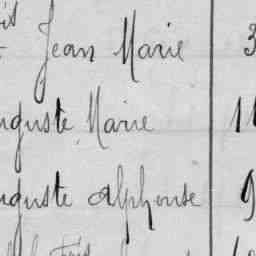 Jean Marie 3
uguste Marie 11
uguste Alphonse 9